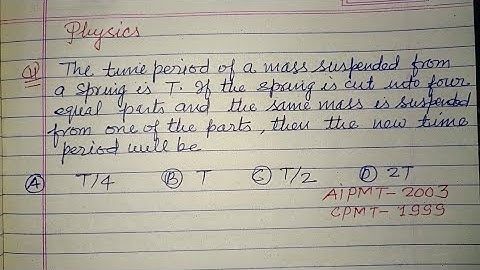 Physics
Q The time period of a mass suspended from
a spring is T. If the spring is cut into four
equal parts and the same mass is suspended
from one of the parts, then the new time
period will be
A T/4 B T C T/2 D 2T
AIPMT-2003
CPMT-1999